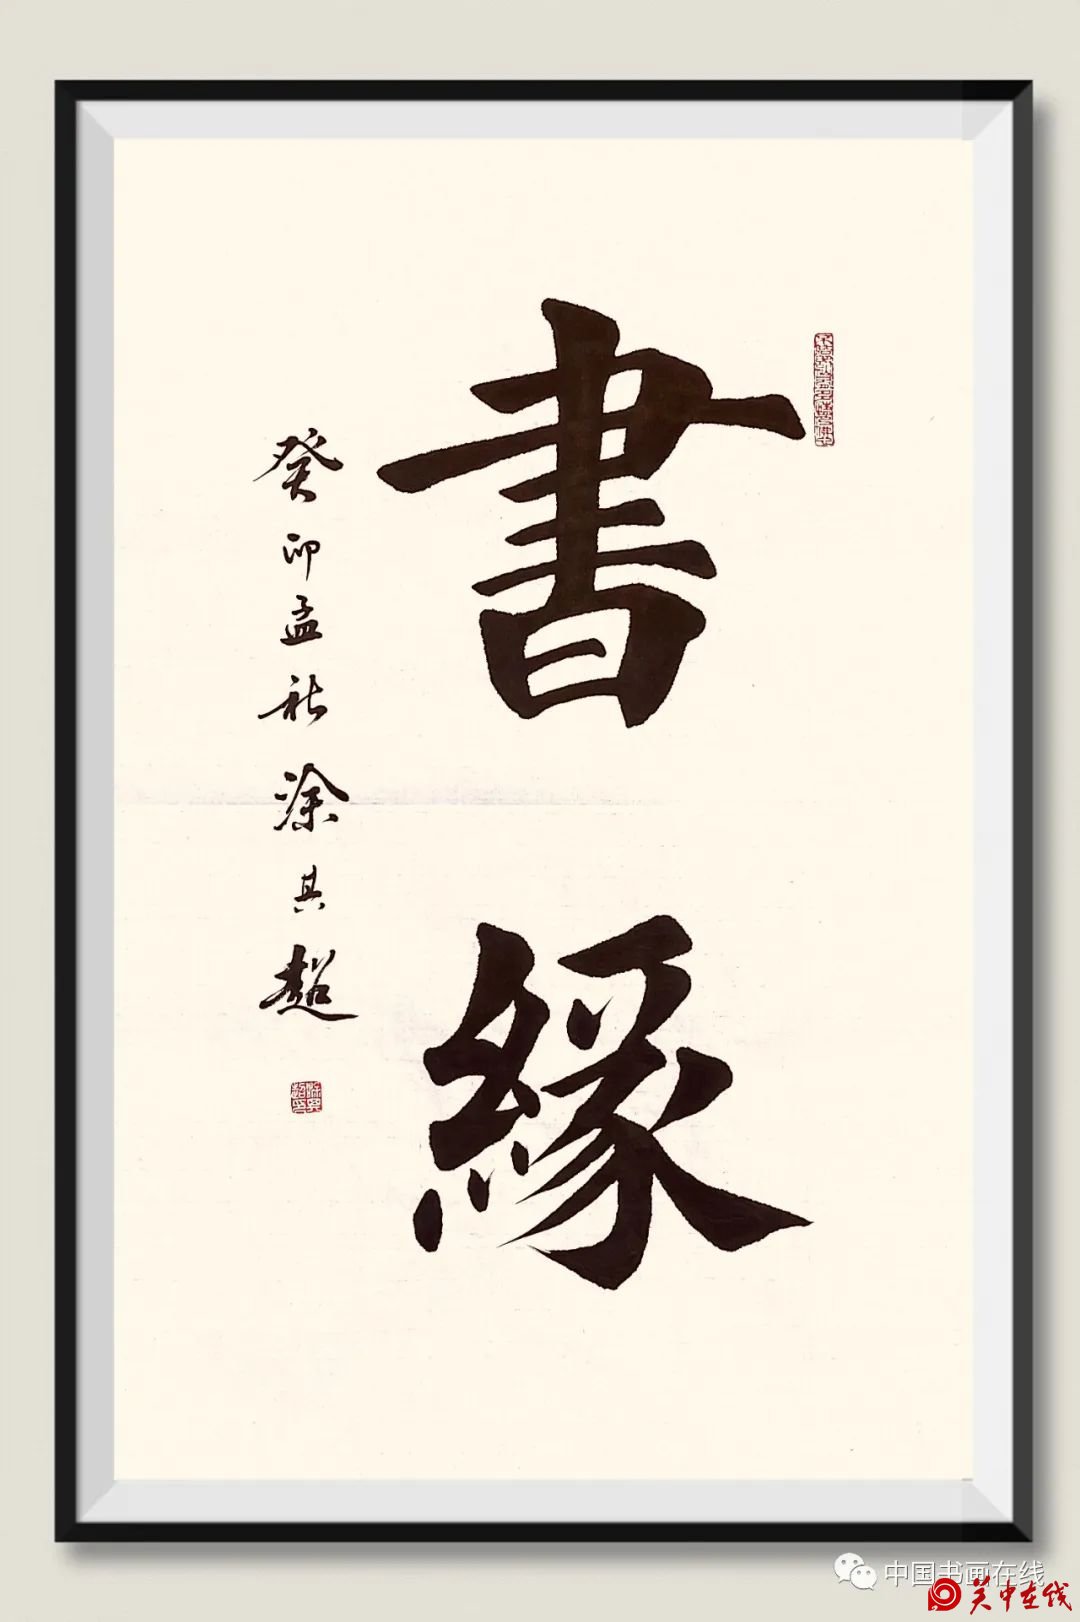 書緣
癸卯孟秋涂其超
中国书画在线
关中在线